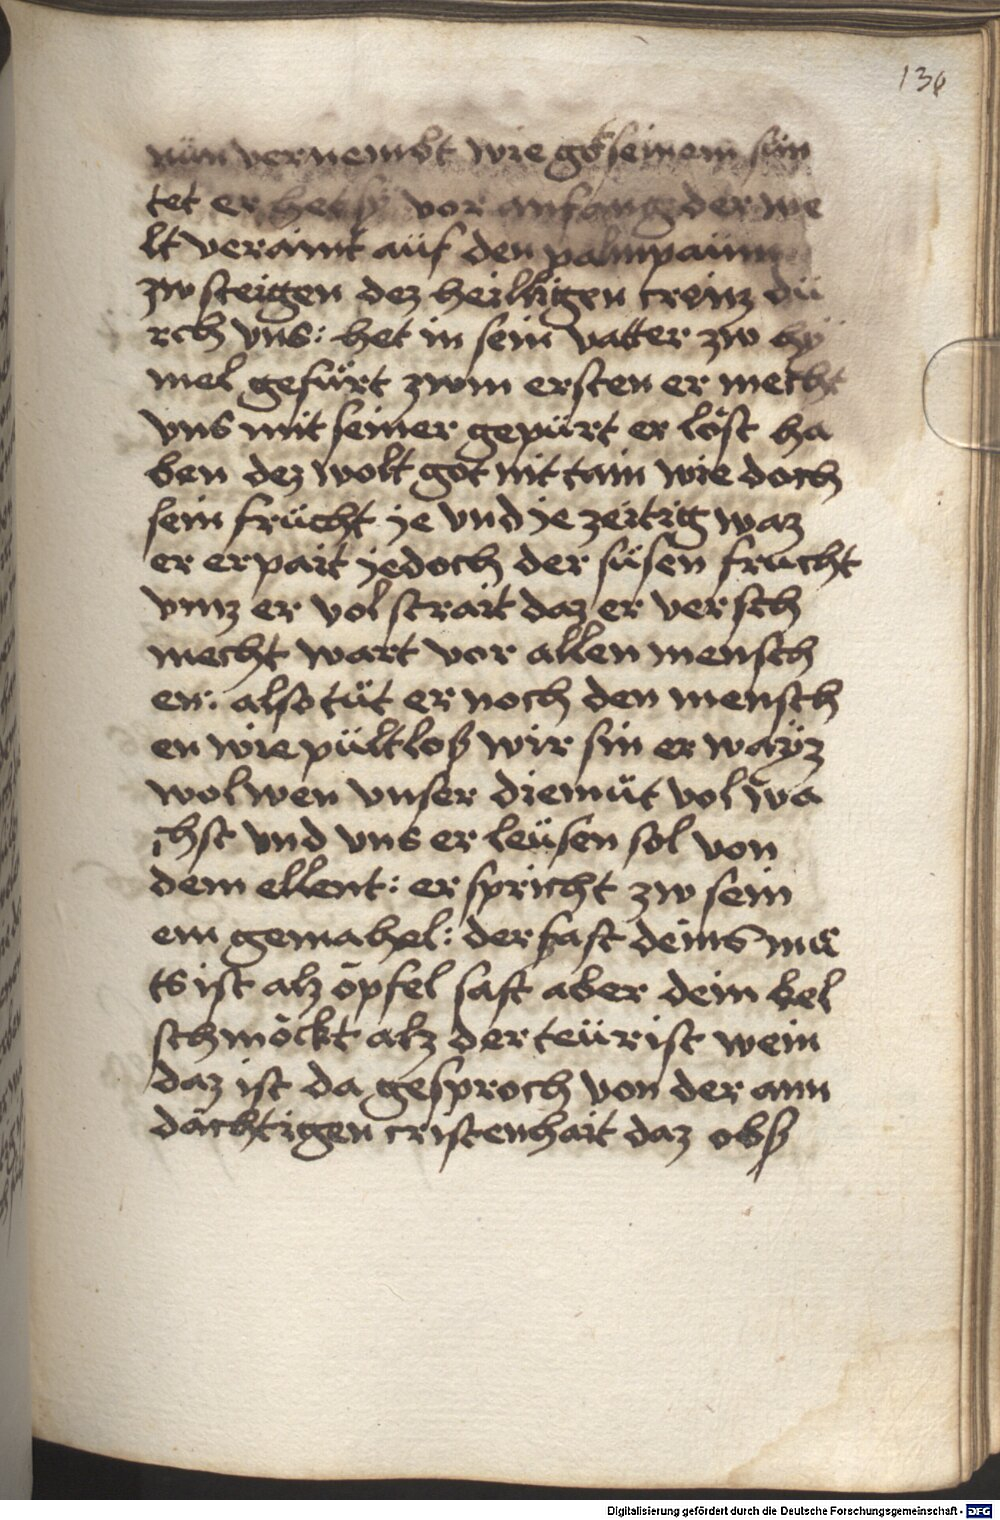 136
nün vernembt wie got seinem sün
tet er het sÿ vor anfang der we
lt veraint aüf den palmpaüm
zw steigen dez heilligen creinz dü
rch vns: het in sein vatter zw hÿ
mel gefürt zwm ersten er mecht
vns mit seiner gepürt er löst ha
ben dez wolt got nit tain wie doch
sein frücht je vnd je zeitig waz
er erpait jedoch der süsen frucht
vmz er vol strait daz er versch
mecht wart vor allen mensch
en: also tüt er noch den mensch
en wie pültloß wir sin er wayz
wol wen vnser diemüt vol wa
chst vnd vns er leüsen sol von
dem ellent: er spricht zw sein
em gemahel: der saft deins
ts ist alz öpfel saft aber dein kel
schmöckt alz der teürist wein
daz ist da gesproch von der ann
dächtigen cristenhait daz obß
Digitalisierung gefördert durch die Deutsche Forschungsgemeinschaft - DFG